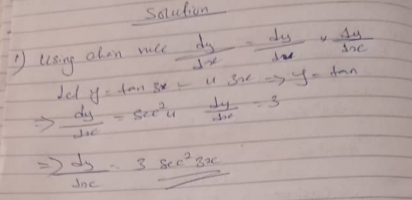 Solution
1) Using chain rule dy/dx = dy/dx × dy/dx
Let y = tan 3x = u 3x => y = tan
=> dy/dx = sec²u dy/dx = 3
=> dy/dx = 3 sec² 3x